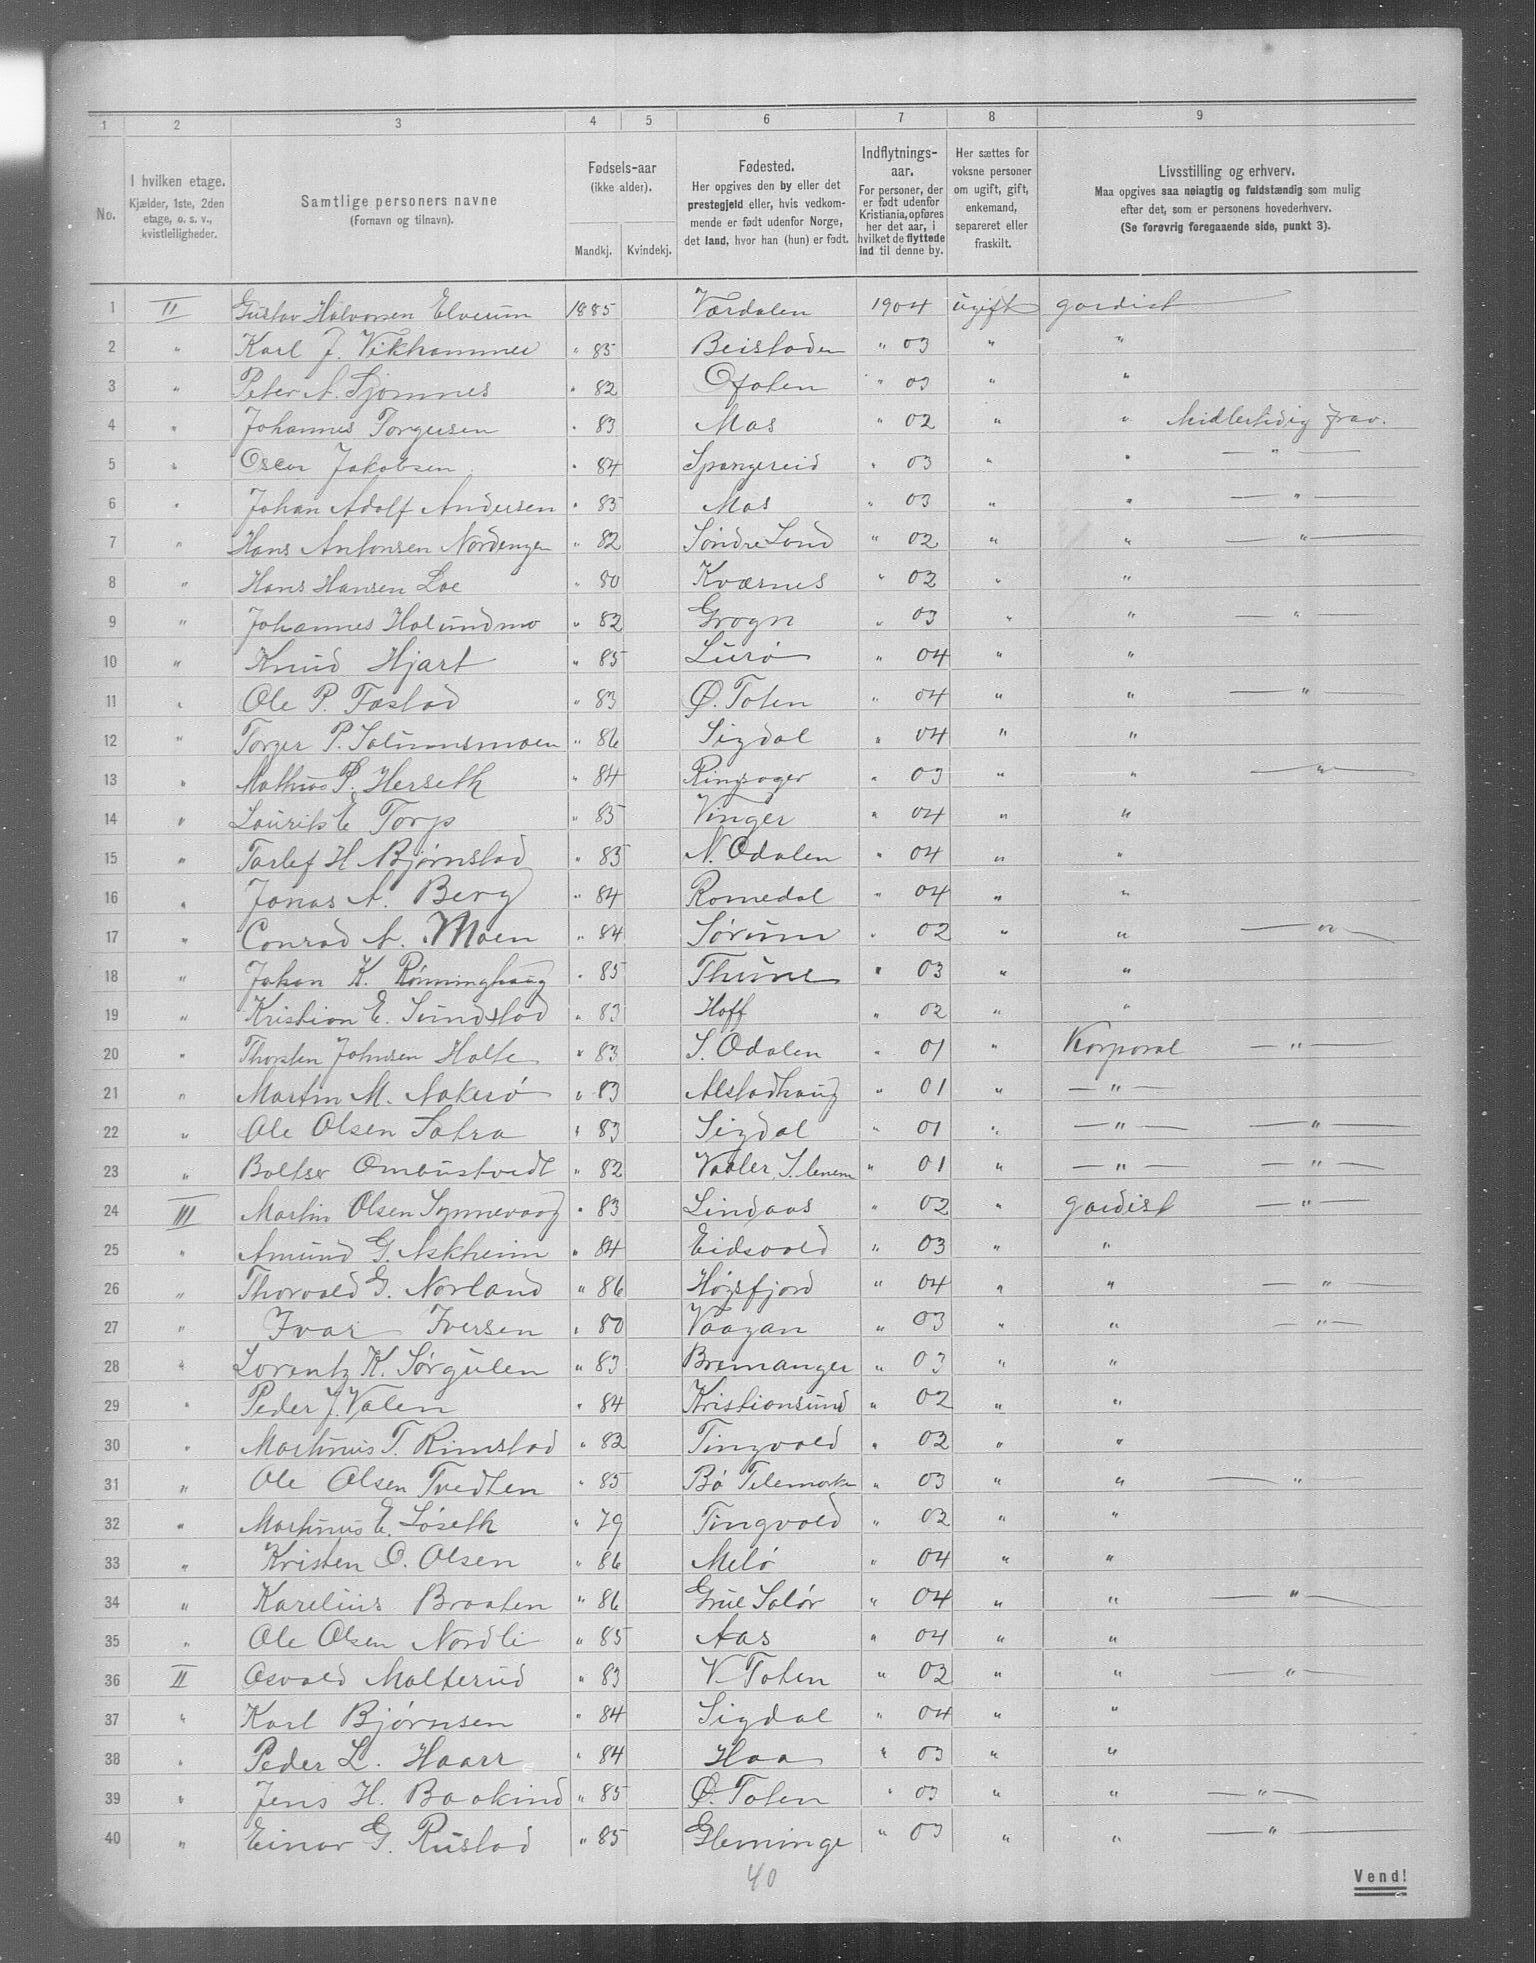 1 2 3 4 5 6 7 8 9
No.
I hvilken etage.
Kjælder, 1ste, 2den
etage, o. s. v.,
kvistleiligheder.
Samtlige personers navne
(Fornavn og tilnavn).
Fødsels-aar
(ikke alder).
Mandkj. Kvindekj.
Fødested.
Her opgives den by eller det
prestegjeld eller, hvis vedkom-
mende er født udenfor Norge,
det land, hvor han (hun) er født.
Indflytnings-
aar.
For personer, der
er født udenfor
Kristiania, opføres
her det aar, i
hvilket de flyttede
ind til denne by.
Her sættes for
voksne personer
om ugift, gift,
enkemand,
separeret eller
fraskilt.
Livsstilling og erhverv.
Maa opgives saa nøiagtig og fuldstændig som mulig
efter det, som er personens hovederhverv.
(Se forøvrig foregaaende side, punkt 3).
1 II Gustav Halvorsen Elverum 1885 Værdalen 1904 ugift gardist
2 " Karl J. Vikhammer " 85 Beistaden " 03 " "
3 " Peter A. Sjomnes " 82 Ofoten " 03 " "
4 " Johannes Torgersen " 83 Mos " 02 " " Midlertidig frav.
5 " Oscar Jakobsen " 84 Spangereid " 03 " " — " —
6 " Johan Adolf Andersen " 85 Mos " 03 " " — " —
7 " Hans Antonsen Nordengen " 82 Søndre Land " 02 " " — " —
8 " Hans Hansen Loe " 80 Kværnes " 02 " "
9 " Johannes " 82 Grogn " 03 " " — " —
10 " Knud Hjart " 85 Lurø " 04 " "
11 " Ole P. Fastad " 83 Ø. Toten " 04 " " — " —
12 " Torger P. " 86 Sigdal " 04 " "
13 " Mathias P. Herseth " 84 Ringsager " 03 " " — " —
14 " Laurits E Torp " 85 Vinger " 04 " "
15 " Tarlef H Bjørnstad " 85 N. Odalen " 04 " "
16 " Jonas A. Berg " 84 Romedal " 04 " "
17 " Conrad A. Moen " 84 Sørum " 02 " " — " —
18 " Johan K. Rønninghaug " 85 Thune " 03 " "
19 " Kristian E. Sundstad " 83 Hoff " 02 " "
20 " Thorsten Johnsen Holte " 83 S. Odalen " 01 " Korporal — " —
21 " Martin M. Aakerø " 83 Alstadhaug " 01 " — " —
22 " Ole Olsen Satra " 83 Sigdal " 01 " — " — — " —
23 " Baltser " 82 Vaaler " 01 " — " — — " —
24 III Martin Olsen Synnevaag " 83 Lindaas " 02 " gardist — " —
25 " Amund G. Askheim " 84 Eidsvold " 03 " "
26 " Thorvald G. Norland " 86 Høgsfjord " 04 " " — " —
27 " Ivar Iversen " 80 Vaagan " 03 " " — " —
28 " Lorentz K. Sørgulen " 83 Bremanger " 03 " "
29 " Peder J. Valen " 84 Kristiansund " 02 " "
30 " Martinus T. Rimstad " 82 Tingvold " 02 " "
31 " Ole Olsen Tvedten " 85 Bø Telemarken " 03 " " — " —
32 " Martinus E. Løseth " 79 Tingvold " 02 " "
33 " Kristen O. Olsen " 86 Melø " 04 " "
34 " Karelius Braaten " 86 Grue Solør " 04 " " — " —
35 " Ole Olsen Nordli " 85 Aas " 04 " "
36 II Osvald Malterud " 83 V Toten " 02 " " — " —
37 " Karl Bjørnsen " 84 Sigdal " 04 " "
38 " Peder L. Haarr " 84 Haa " 03 " "
39 " Jens H. Baakind " 85 Ø. Toten " 03 " " — " —
40 " Einar G. Rustad " 85 Gleminge " 03 " " — " —
40
Vend!